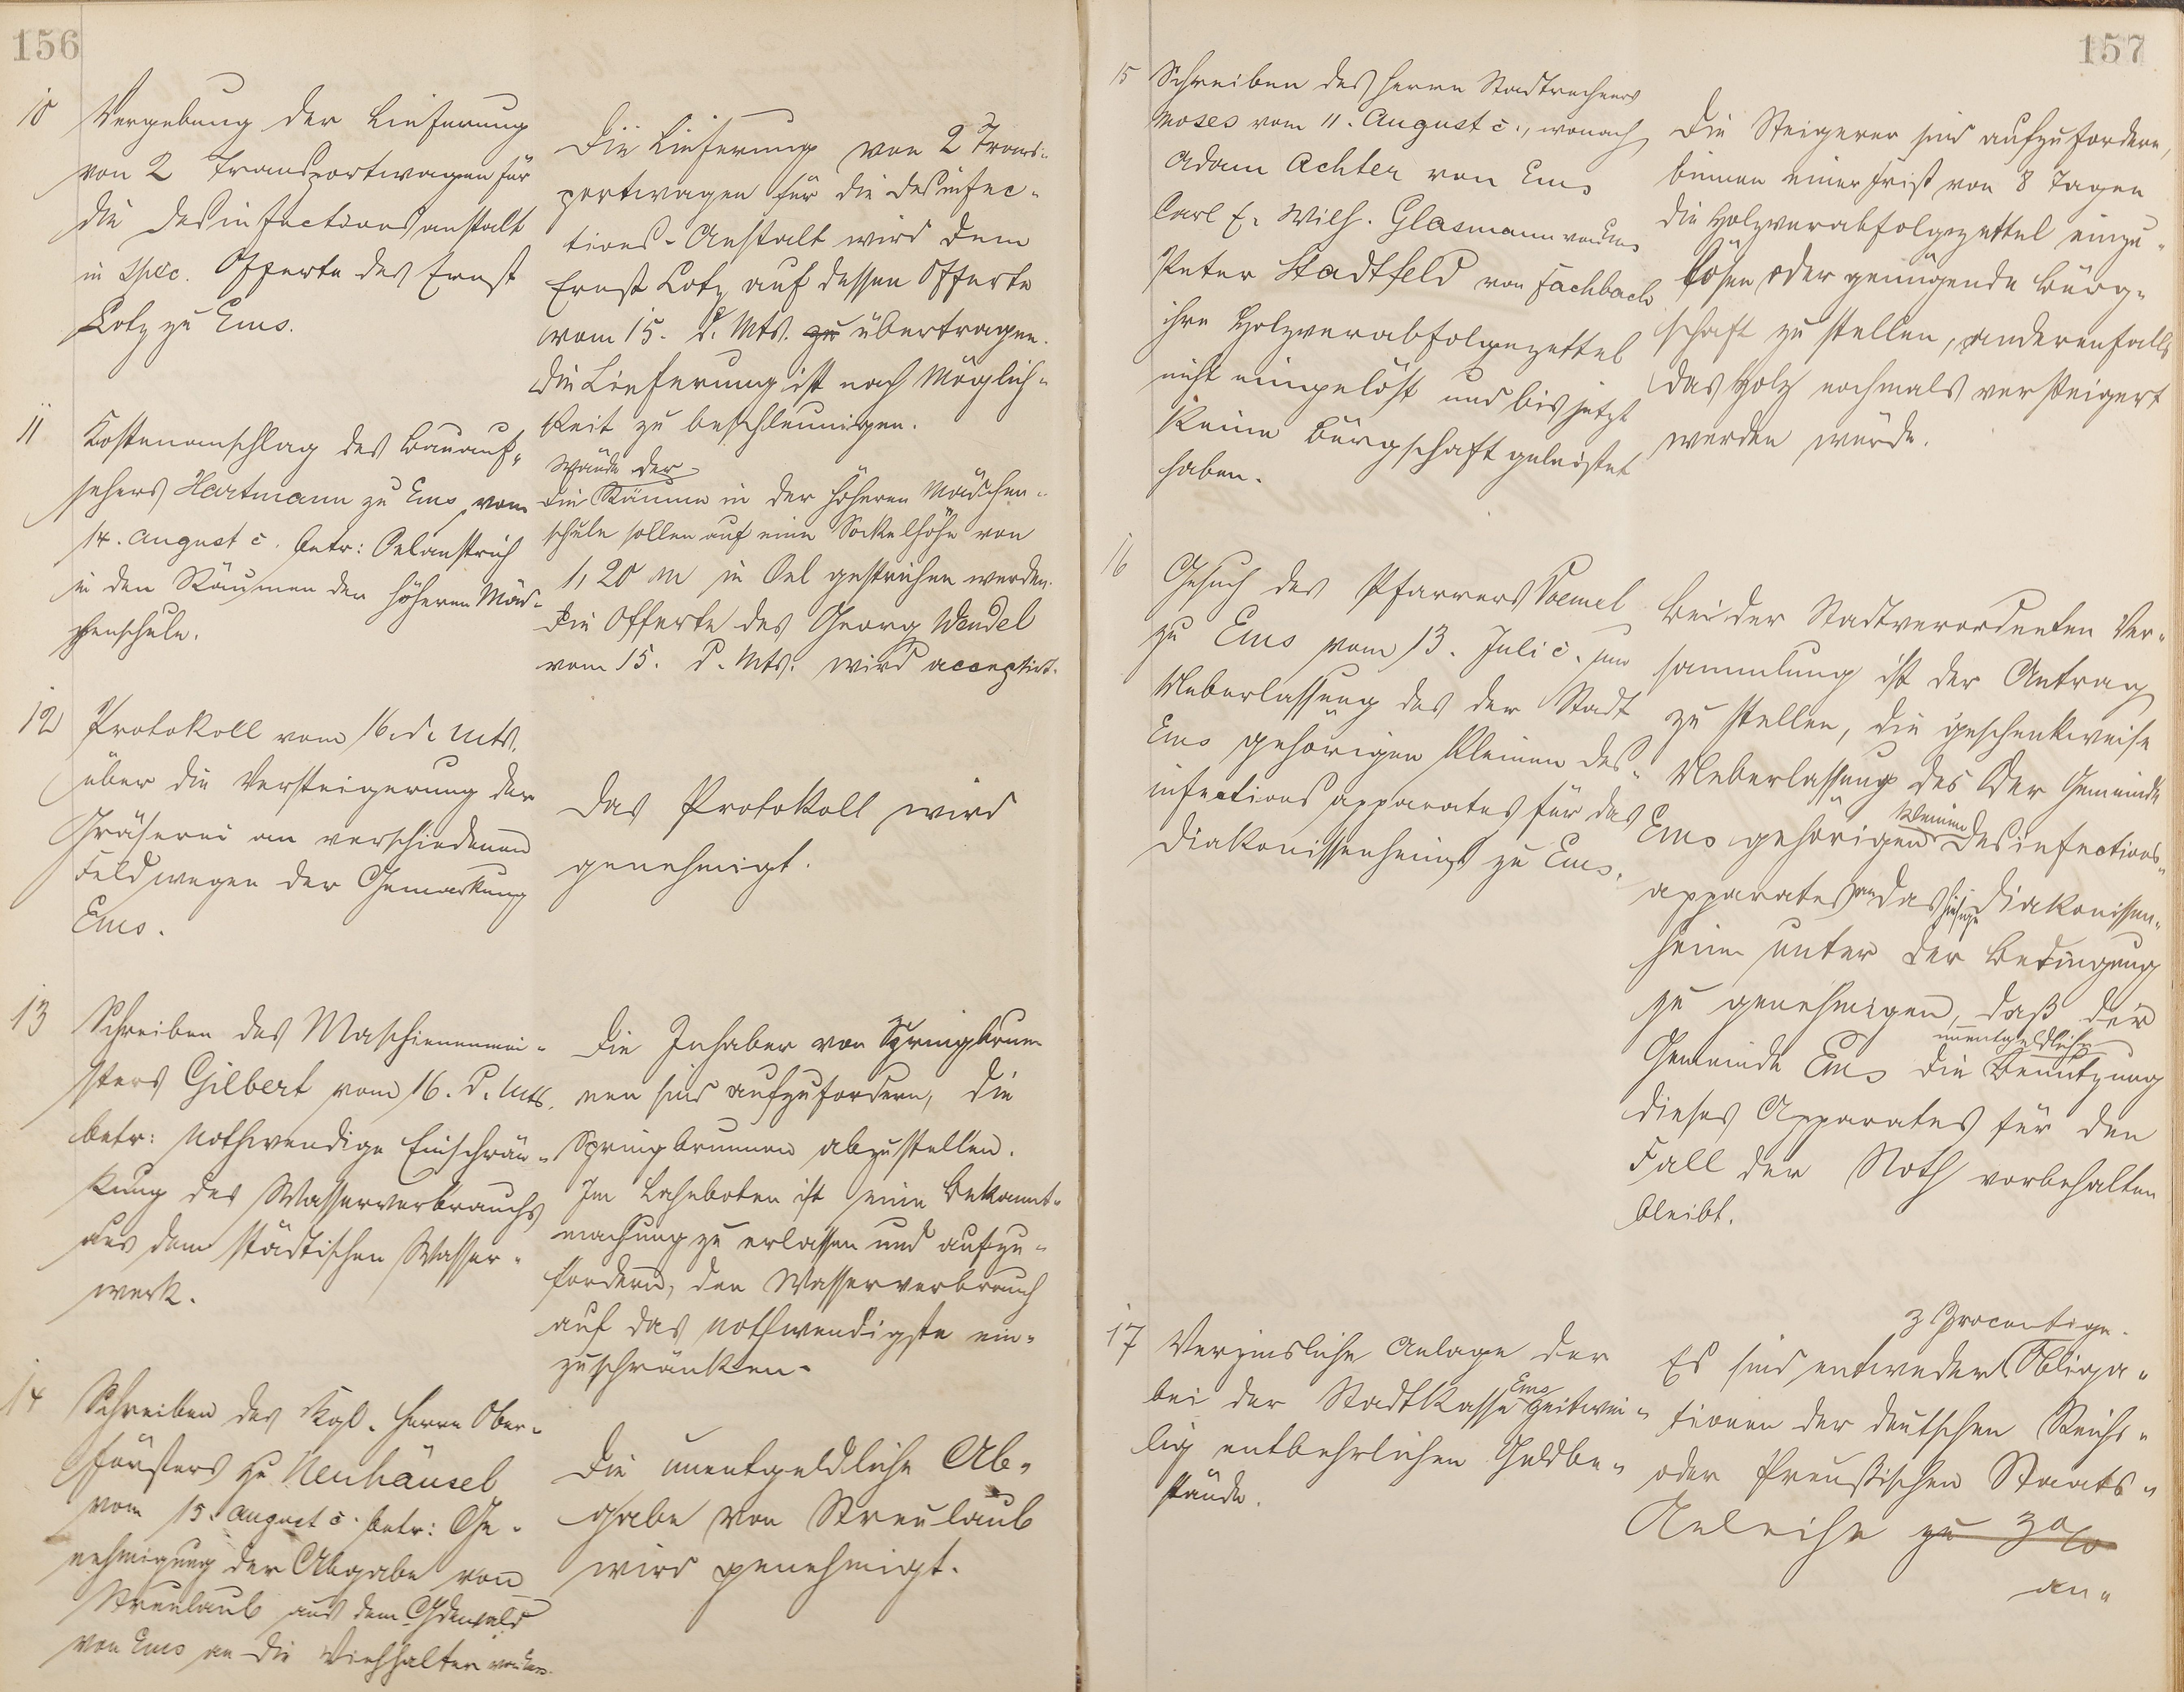 156
10
Vergebung der Lieferung
von 2 Transportwagen für
die Desinfectionsanstalt
in spec. Offerte des Ernst
Lotz zu Ems.
Die Lieferung von 2 Trans-
portwagen für die Desinfec-
tions-Anstalt wird dem
Ernst Lotz auf dessen Offerte
vom 15. d. Mts. zu übertragen.
Die Lieferung ist nach Möglich-
keit zu beschleunigen.
11
Kostenanschlag des Bauauf-
sehers Hartmann zu Ems vom
14. August c. betr: Oelanstrich
in den Räumen der höheren Mäd-
chenschule.
Wände der
Die Räume in der höheren Mädchen-
schule sollen auf eine Sockelhöhe von
1,20 m in Oel gestrichen werden.
Die Offerte des Georg Wendel
vom 15. d. Mts. wird acceptirt.
12
Protokoll vom 16. d. Mts.
über die Versteigerung der
Gräserei an verschiedenen
Feldwegen der Gemarkung
Ems.
Das Protokoll wird
genehmigt.
13
Schreiben des Maschinenmei-
sters Gilbert vom 16. d. Mts.
betr: nothwendige Einschrän-
kung des Wasserverbrauchs
aus dem städtischen Wasser-
werk.
Die Inhaber von Springbrun-
nen sind aufzufordern, die
Springbrunnen abzustellen.
Im Lahnboten ist eine Bekannt-
machung zu erlassen und aufzu-
fordern, den Wasserverbrauch
auf das nothwendigste ein-
zuschränken.
14
Schreiben des Kgl. Herrn Ober-
försters zu Neuhäusel
vom 15. August c. betr: Ge-
nehmigung der Abgabe von
Streulaub aus dem
von Ems an die Viehhalter von Ems.
Die unentgeldliche Ab-
gabe von Streulaub
wird genehmigt.
157
15
Schreiben des Herrn Stadtrechners
Moses vom 11. August c., wonach
Adam Achter von Ems
Carl E. Wilh. Glasmann von Ems
Peter Stadtfeld von Fachbach
ihre Holzverabfolgezettel
nicht eingelöst und bis jetzt
keine Bürgschaft geleistet
haben.
Die Steigerer sind aufzufordern,
binnen einer Frist von 8 Tagen
die Holzverabfolgezettel einzu-
lösen oder genügende Bürg-
schaft zu stellen, anderenfalls
das Holz nochmals versteigert
werden würde.
16
Gesuch des Pfarrers Voemel
zu Ems vom 13. Juli c. um
Ueberlassung des der Stadt
Ems gehörigen kleinen Des-
infectionsapparates für das
Diakonissenheim zu Ems.
Bei der Stadtverordneten Ver-
sammlung ist der Antrag
zu stellen, die geschenkweise
Ueberlassung des der Gemeinde
kleinen
Ems gehörigen Desinfections-
apparates an das hiesige Diakonissen-
heim unter der Bedingung
zu genehmigen, daß der
unentgeldliche
Gemeinde Ems die Benutzung
dieses Apparates für den
Fall der Noth vorbehalten
bleibt.
17
Verzinsliche Anlage der
bei der Stadtkasse Ems zeitwei-
lig entbehrlichen Geldbe-
stände.
3 procentige
Es sind entweder Obliga-
tionen der deutschen Reichs-
oder Preußischen Staats-
Anleihe zu 3%
an-